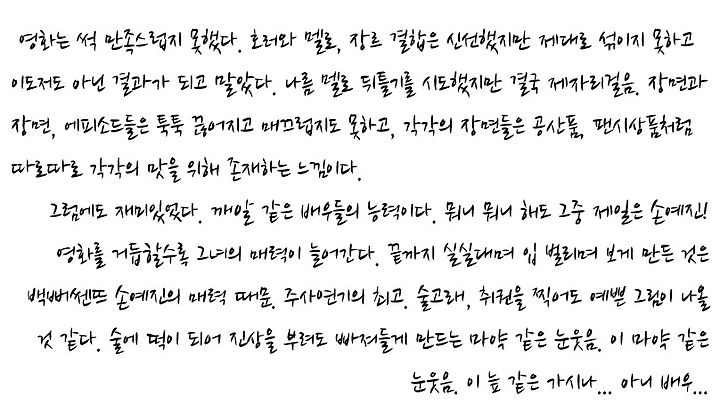 영화는 썩 만족스럽지 못했다. 호러와 멜로, 장르 결합은 신선했지만 제대로 섞이지 못하고
이도저도 아닌 결과가 되고 말았다. 나름 멜로 뒤틀기를 시도했지만 결국 제자리걸음. 장면과
장면, 에피소드들은 툭툭 끊어지고 매끄럽지도 못하고, 각각의 장면들은 공산품, 팬시상품처럼
따로따로 각각의 맛을 위해 존재하는 느낌이다.
그럼에도 재미있었다. 깨알 같은 배우들의 능력이다. 뭐니 뭐니 해도 그중 제일은 손예진!
영화를 거듭할수록 그녀의 매력이 늘어간다. 끝까지 실실대며 입 벌리며 보게 만든 것은
백뻐쎈뜨 손예진의 매력 때문. 주사연기의 최고. 술고래, 취권을 찍어도 예쁜 그림이 나올
것 같다. 술에 떡이 되어 진상을 부려도 빠져들게 만드는 마약 같은 눈웃음. 이 마약 같은
눈웃음. 이 늪 같은 가시나... 아니 배우...